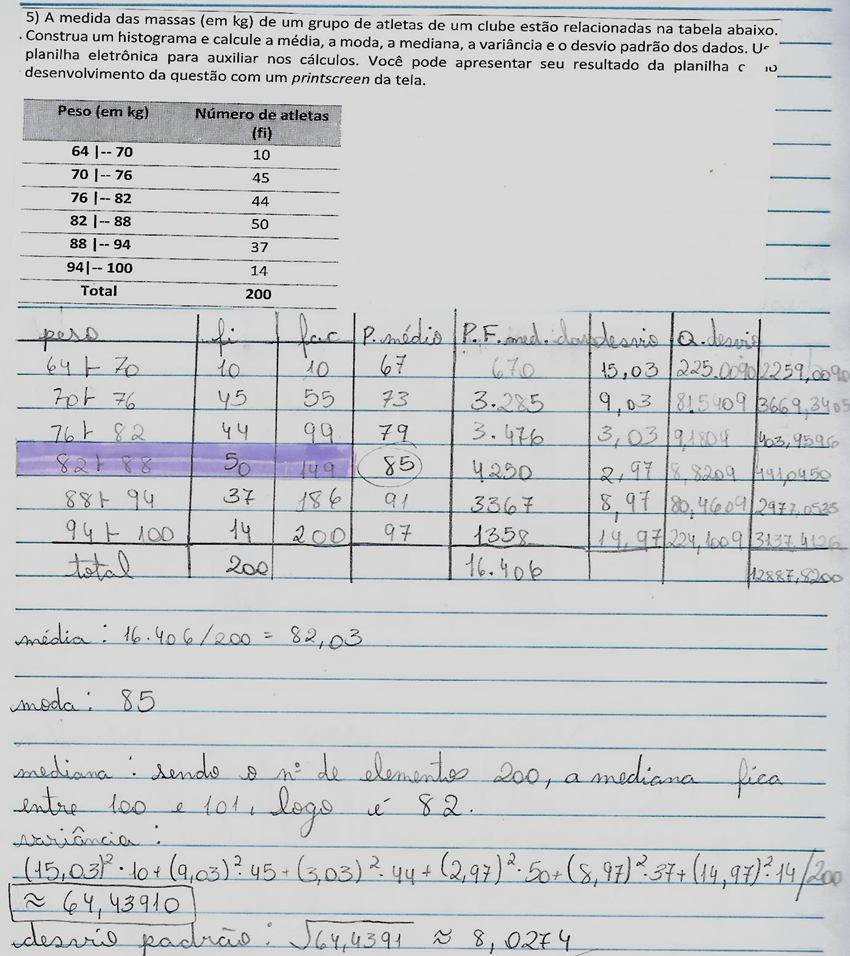 5) A medida das massas (em kg) de um grupo de atletas de um clube estão relacionadas na tabela abaixo.
Construa um histograma e calcule a média, a moda, a mediana, a variância e o desvio padrão dos dados.
planilha eletrônica para auxiliar nos cálculos. Você pode apresentar seu resultado da planilha
desenvolvimento da questão com um printscreen da tela.
Peso (em kg) Número de atletas
(fi)
64 |-- 70 10
70 |-- 76 45
76 |-- 82 44
82 |-- 88 50
88 |-- 94 37
94|-- 100 14
Total 200
peso fi fac P. médio P.F. med. desvio Q. desvio
64 ⊢ 70 10 10 67 670 15,03 225.0090 2259,0090
70 ⊢ 76 45 55 73 3.285 9,03 81.5409 3669,3405
76 ⊢ 82 44 99 79 3.476 3,03 9,1809 403,9596
82 ⊢ 88 50 149 85 4250 2,97 8,8209 441,0450
88 ⊢ 94 37 186 91 3367 8,97 80,4609 2977,0535
94 ⊢ 100 14 200 97 1358 14,97 224,1009 3137,4126
total 200 16.406 12887,8200
média: 16.406/200 = 82,03
moda: 85
mediana: sendo o nº de elementos 200, a mediana fica
entre 100 e 101, logo é 82.
variância:
(15,03)²·10+(9,03)²·45+(3,03)²·44+(2,97)²·50+(8,97)²·37+(14,97)²·14/200
≈ 64,43910
desvio padrão: √64,4391 ≈ 8,0274